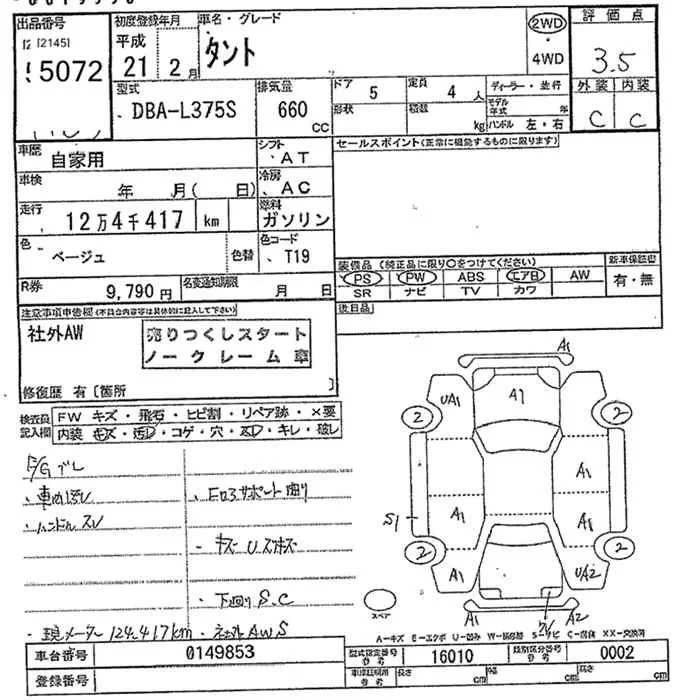 出品番号
[21451
5072
初度登録年月
平成
21 2月
車名・グレード
タント
2WD
・
4WD
評価点
3.5
外装 内装
C C
型式
DBA-L375S
排気量
660
CC
ドア 5
定員 4人
形状
積数 kg
ディーラー・並行
モデル年式 年
ハンドル 左・右
車歴 自家用
シフト AT
セールスポイント(正常に機能するものに限ります)
車検 年 月( 日)
冷房 AC
走行 12万4千417 km
燃料 ガソリン
色 ベージュ 色替
色コード T19
装備品(純正品に限り○をつけてください)
新車保証書
PS PW ABS エアB AW
有・無
SR ナビ TV カワ
R券 9,790円
名変通知期限 月 日
後日品
注意事項申告欄(不具合内容等は具体的に記入して下さい)
社外AW
売りつくしスタート
ノークレーム車
修復歴 有〔箇所 〕
検査員記入欄
FW キズ・飛石・ヒビ割・リペア跡・×要
内装 キズ・汚レ・コゲ・穴・ヌレ・キレ・破レ
・ハンドルスレ
・キズ Uスキズ
・下回り S.C
・現メーター 124,417km
・社外AWS
A1
A1
UA1
2
2
A1
A1
A1
S1
2
2
A1
UA2
A1
A2
スペア
A-キズ E-エクボ U-凹み W-補修跡 S-サビ C-腐食 XX-交換済
車台番号 0149853
型式指定番号 16010
類別区分番号 0002
登録番号
長さ cm
幅 cm
高さ cm